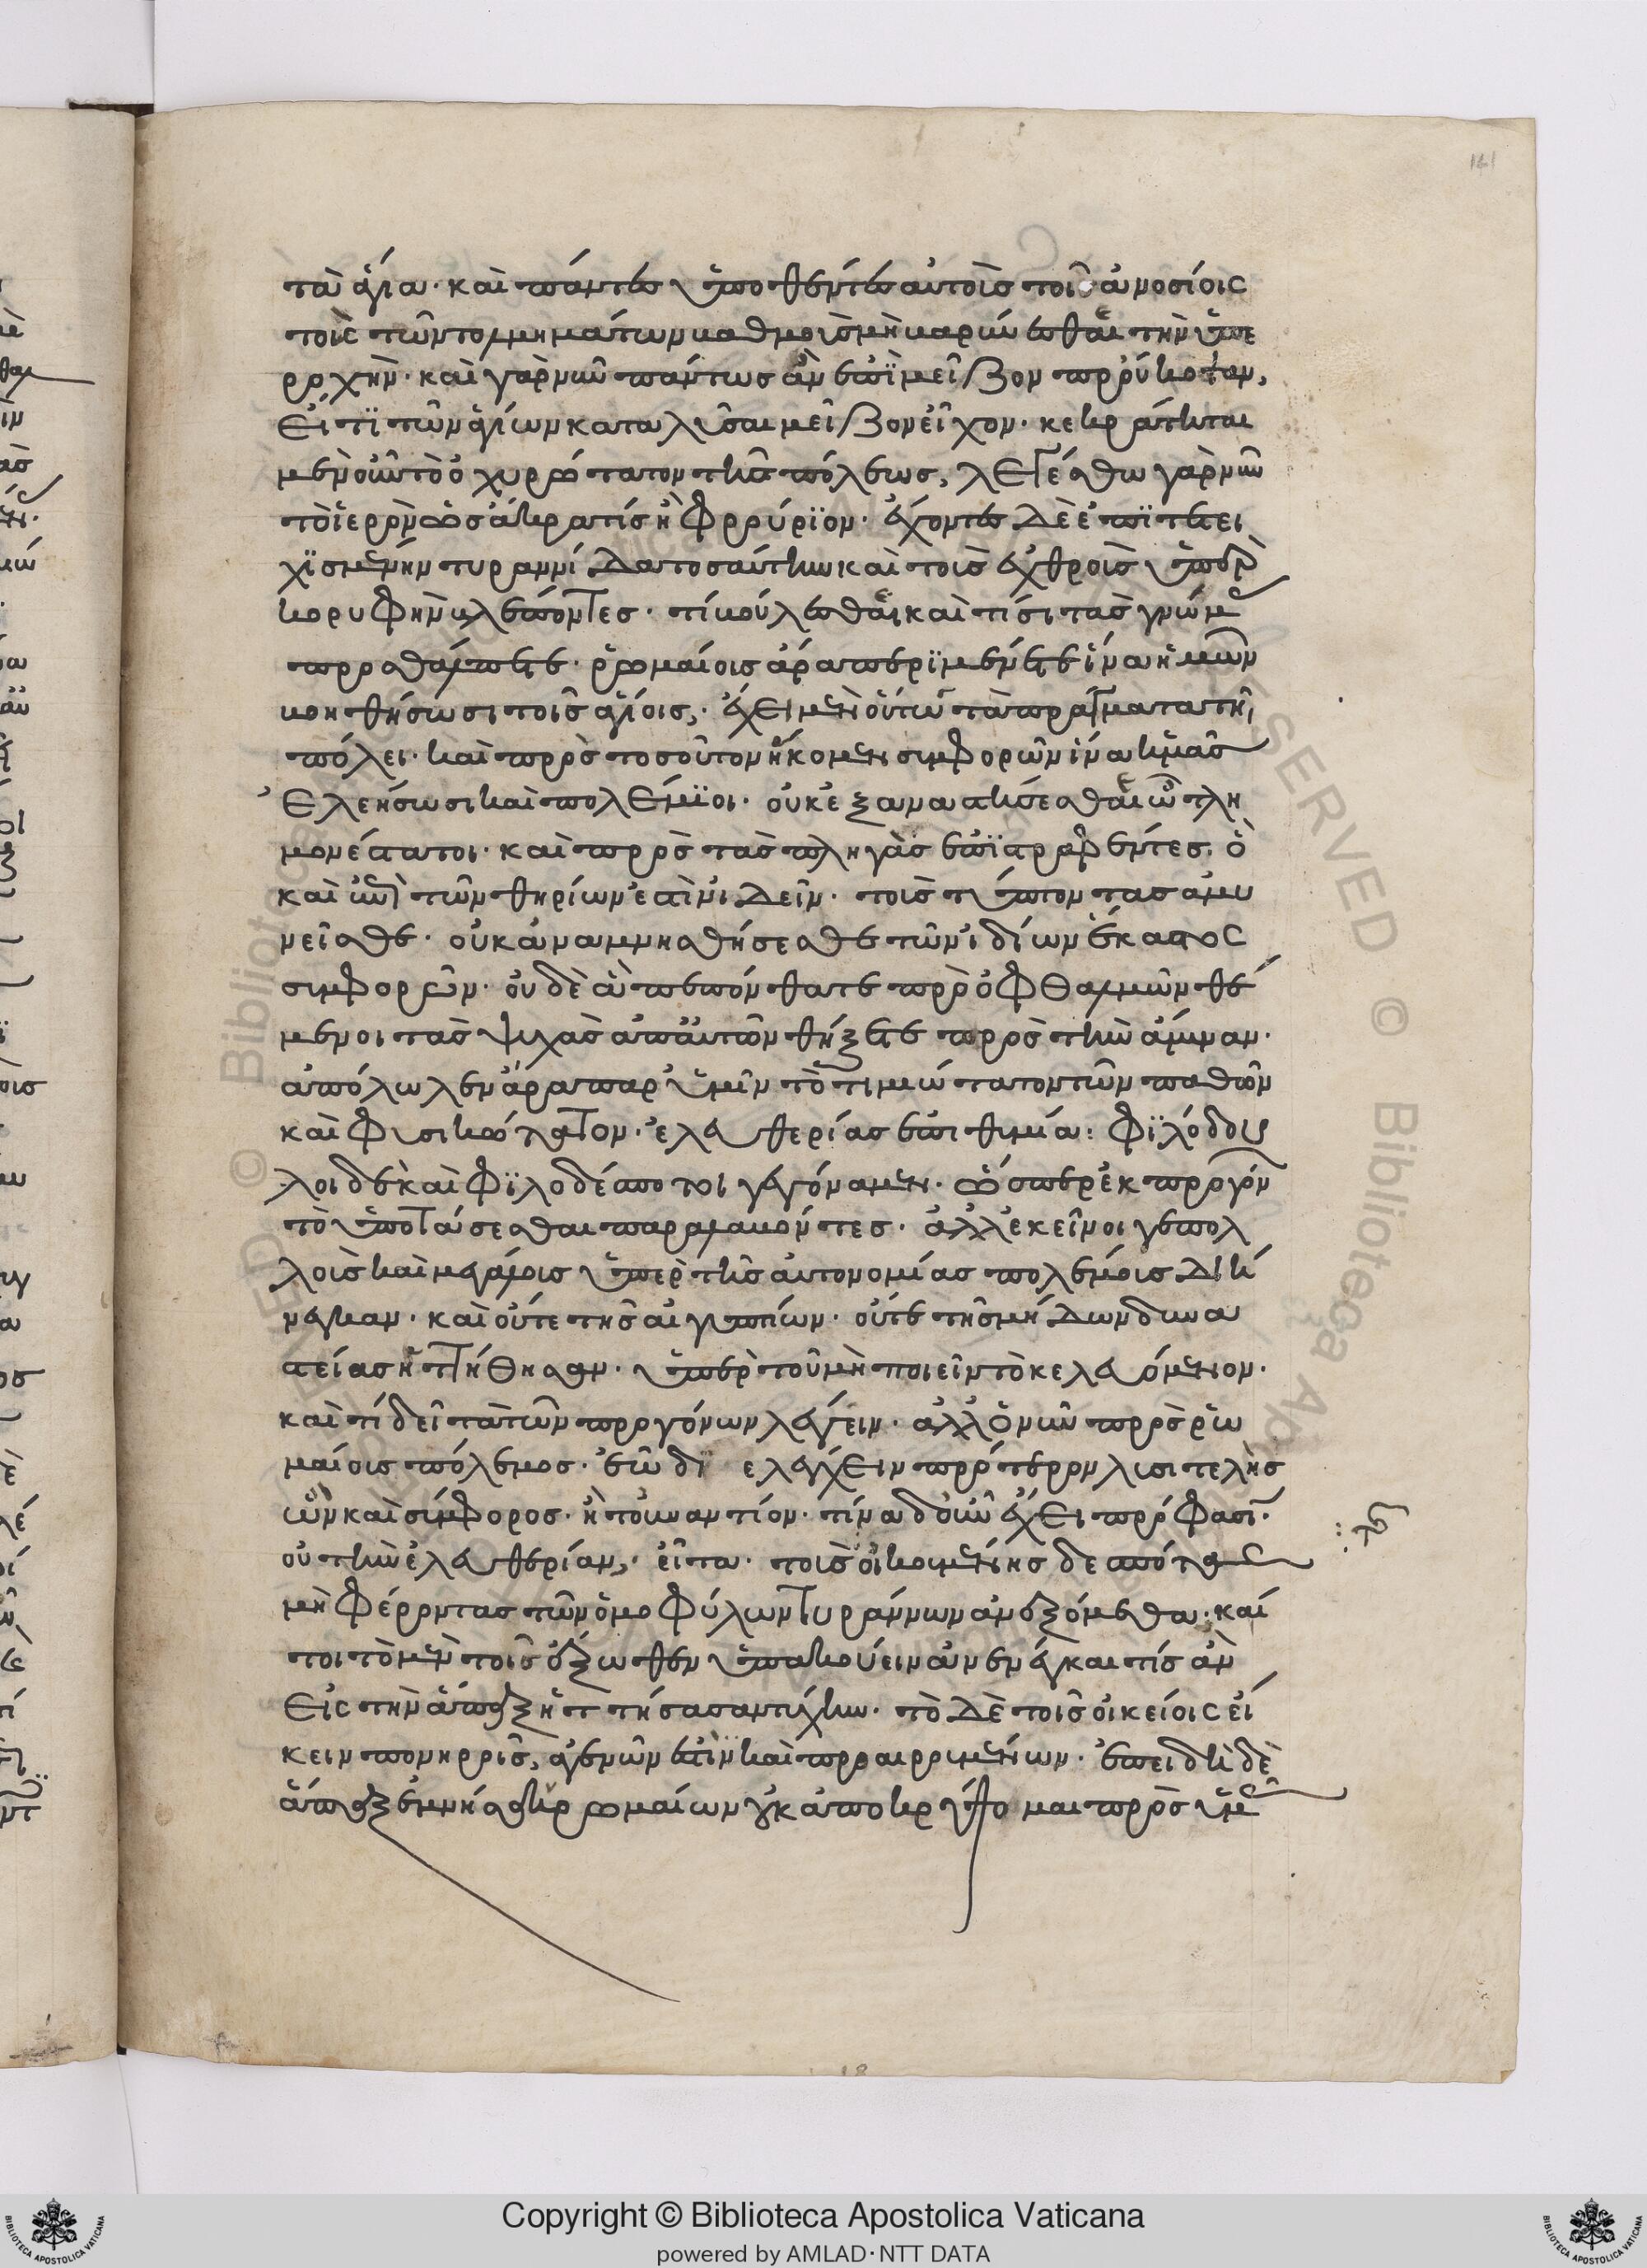 141
τὰ ἅγια· καὶ πάντες ὑποθέντες αὐτοῖς τοῖς ἀνοσίοις
τοῖς τῶν τολμημάτων βαθμοῖς μὴ βαρύνεσθαι τὴν ὑπε
ροχήν· καὶ γὰρ νῦν πάντως ἂν ἐπὶ μεῖζον προύκοπτον,
εἴ τι τῶν ἁγίων καταλῦσαι μεῖζον εἶχον· κεκράτηται
μὲν οὖν τὸ ὀχυρώτατον τῆς πόλεως, λεγέσθω γὰρ νῦν
τὸ ἱερὸν ὡς ἄκρα τίς ἢ φρούριον· ἔχοντες δὲ ἐπιτετει
χισμένην τυραννίδα τοσαύτην καὶ τοὺς ἐχθροὺς ὑπὲρ
κορυφὴν βλέποντες· τί βούλεσθαι καὶ τίσι τὰς γνώμ
προσθάλπετε· ῥωμαίοις ἄρα περιμένετε ἵν' ἡμῶν
βοηθήσωσι τοῖς ἁγίοις· ἔχει μὲν οὕτω τὰ πράγματα τῆ
πόλει· καὶ πρὸς τοσοῦτον ἥκομεν συμφορῶν ἵνα ἡμᾶς
ἐλεήσωσι καὶ πολέμιοι· οὐκ ἐξαναστήσεσθαι ὦ τλη
μονέστατοι· καὶ πρὸς τὰς πληγὰς ἐπιστραφέντες· ὃ
καὶ ἐπὶ τῶν θηρίων ἐστὶν ἰδεῖν· τοὺς τύπτοντας ἀμυ
νεῖσθε· οὐκ ἀναμνησθήσεσθε τῶν ἰδίων ἕκαστος
συμφορῶν· οὐδὲ ἃ πεπόνθατε πρὸ ὀφθαλμῶν θέ
μενοι τὰς ψυχὰς ἐπ' αὐτῶν θήξετε πρὸς τὴν ἄμυναν·
ἀπόλωλεν ἄρα παρ' ὑμῖν τὸ τιμιώτατον τῶν παθῶν
καὶ φυσικώτατον· ἐλευθερίας ἐπιθυμία· φιλόδου
λοι δὲ καὶ φιλοδέσποτοι γεγόναμεν· ὥσπερ ἐκ προγόν
τὸ ὑποτάσσεσθαι παραλαβόντες· ἀλλ' ἐκεῖνοι γε πολ
λοὺς καὶ μεγάλους ὑπὲρ τῆς αὐτονομίας πολέμους διή
νεγκαν· καὶ οὔτε τῆς αἰγυπτίων· οὔτε τῆς μήδων δυνα
στείας ἡττήθησαν· ὑπὲρ τοῦ μὴ ποιεῖν τὸ κελευόμενον·
καὶ τί δεῖ τὰ τῶν προγόνων λέγειν· ἀλλ' ὁ νῦν πρὸς ῥω
μαίους πόλεμος· ἐῶ δι ελέγχειν πρότερον λυσιτελὴς
ὢν καὶ σύμφορος· ἢ τοὐναντίον· τίνα δ' οὖν ἔχει πρόφασι·
οὐ τὴν ἐλευθερίαν· εἶτα· τοὺς οἰκουμένης δεσπότας
μὴ φέροντας τῶν ὁμοφύλων τυράννων ἀνεξόμεθα· καί
τοι τὸ μὲν τοῖς ἔξωθεν ὑπακούειν ἀνενέγκαι τίς ἂν
εἰς τὴν ἅπαξ ἡττήσασαν τύχην· τὸ δὲ τοῖς οἰκείοις εἴ
κειν πονηροῖς, ἀγεννῶν ἐστὶν καὶ προαιρουμένων· ἐπειδὴ δὲ
ἅπαξ ἐμνήσθην ῥωμαίων οὐκ ἀποκρύψομαι πρὸς ὑμ